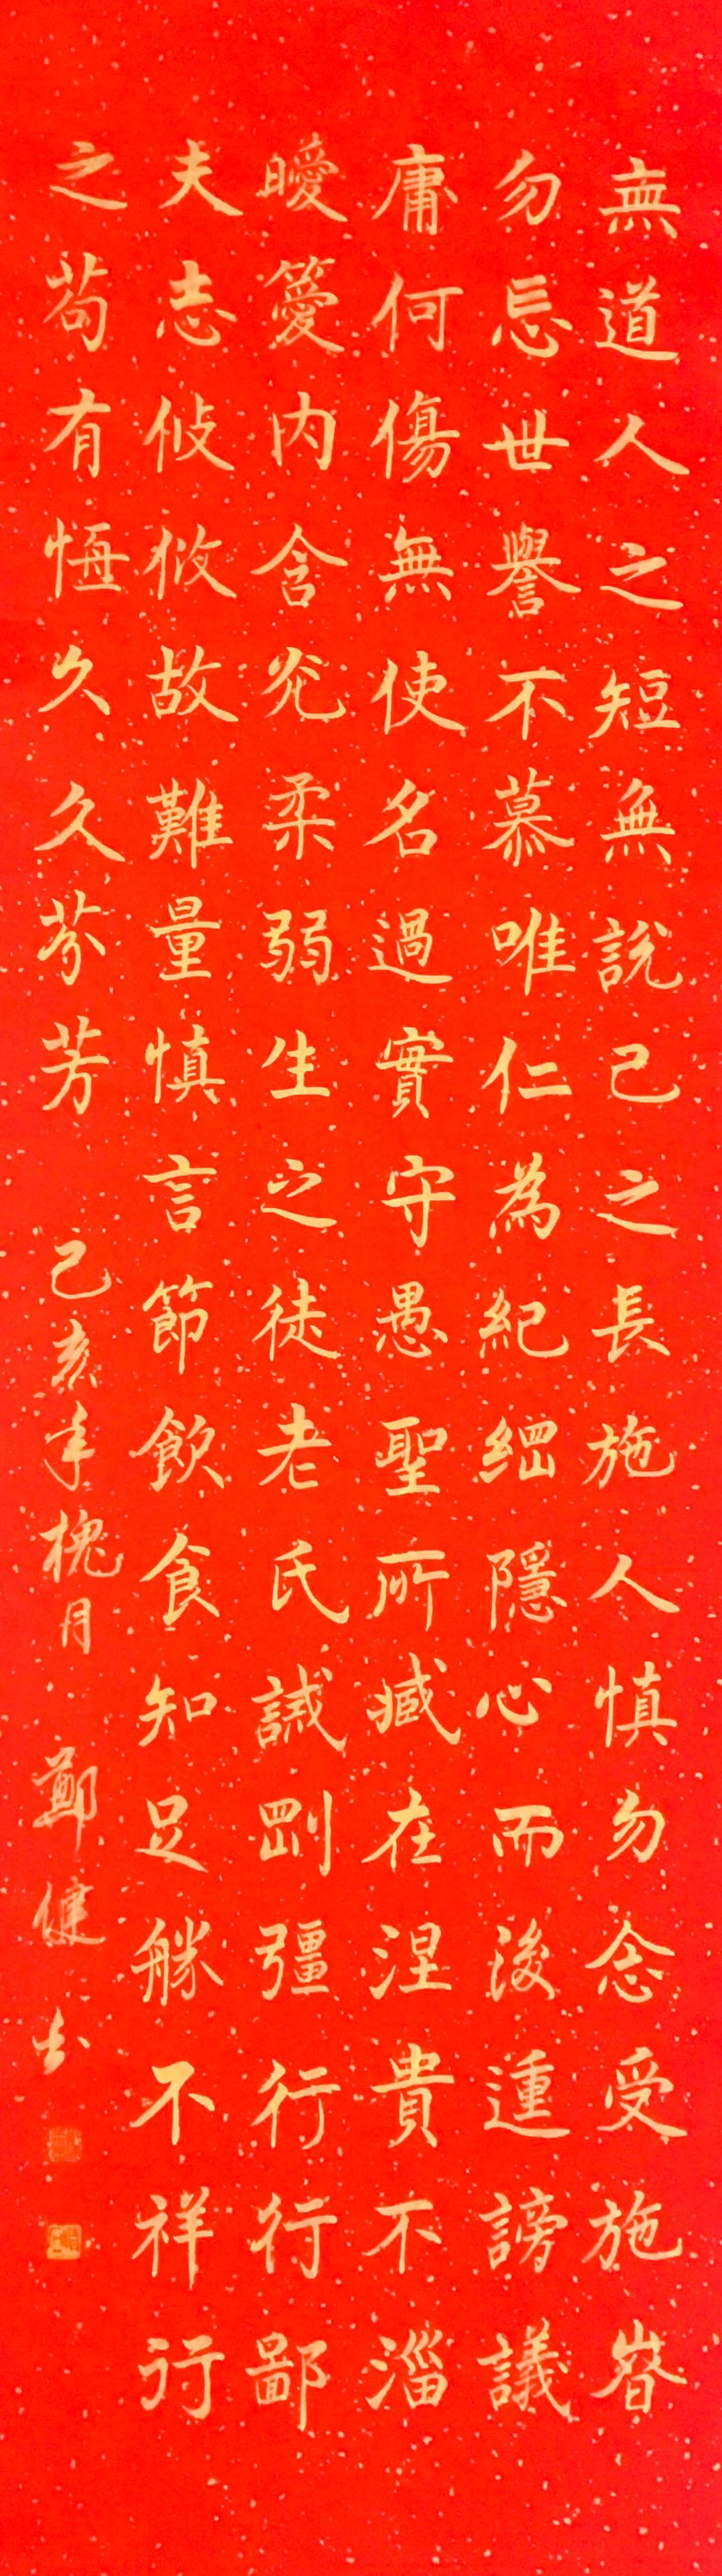 無道人之短無說己之長施人慎勿念受施眘
勿忘世譽不慕唯仁為紀綱隱心而後動謗議
庸何傷無使名過實守愚聖所臧在涅貴不淄
曖曖內含光柔弱生之徒老氏誡剛彊行行鄙
夫志悠悠故難量慎言節飲食知足勝不祥行
之苟有恆久久芬芳
己亥年槐月 鄭健書